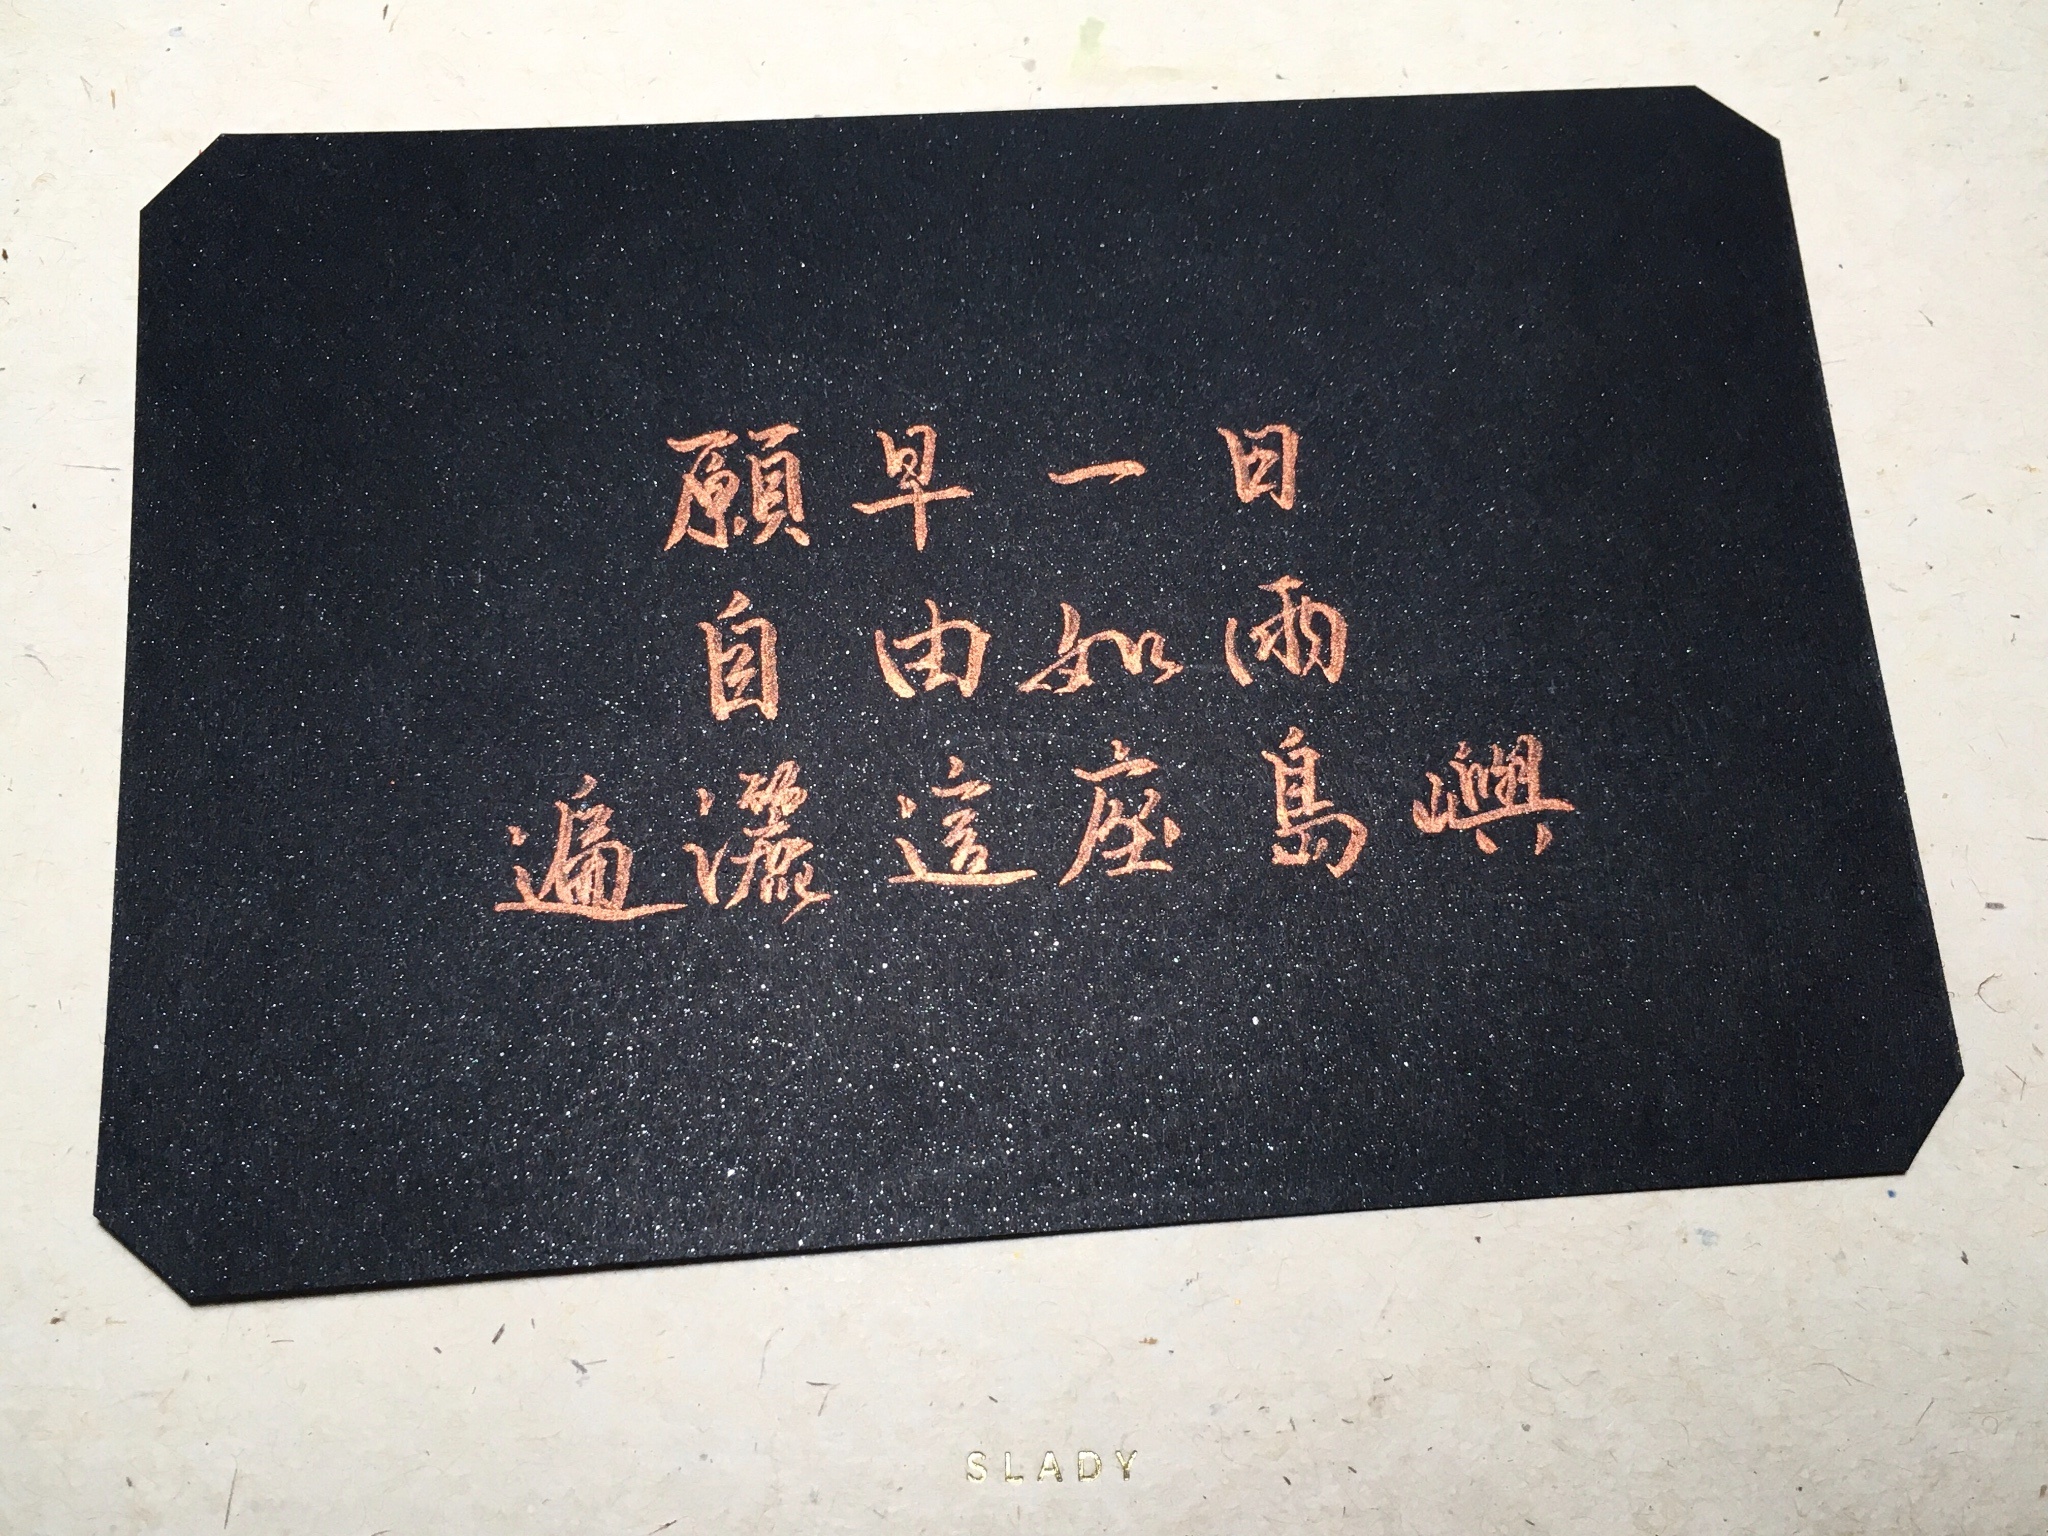 願早一日
自由如雨
遍灑這座島嶼
SLADY